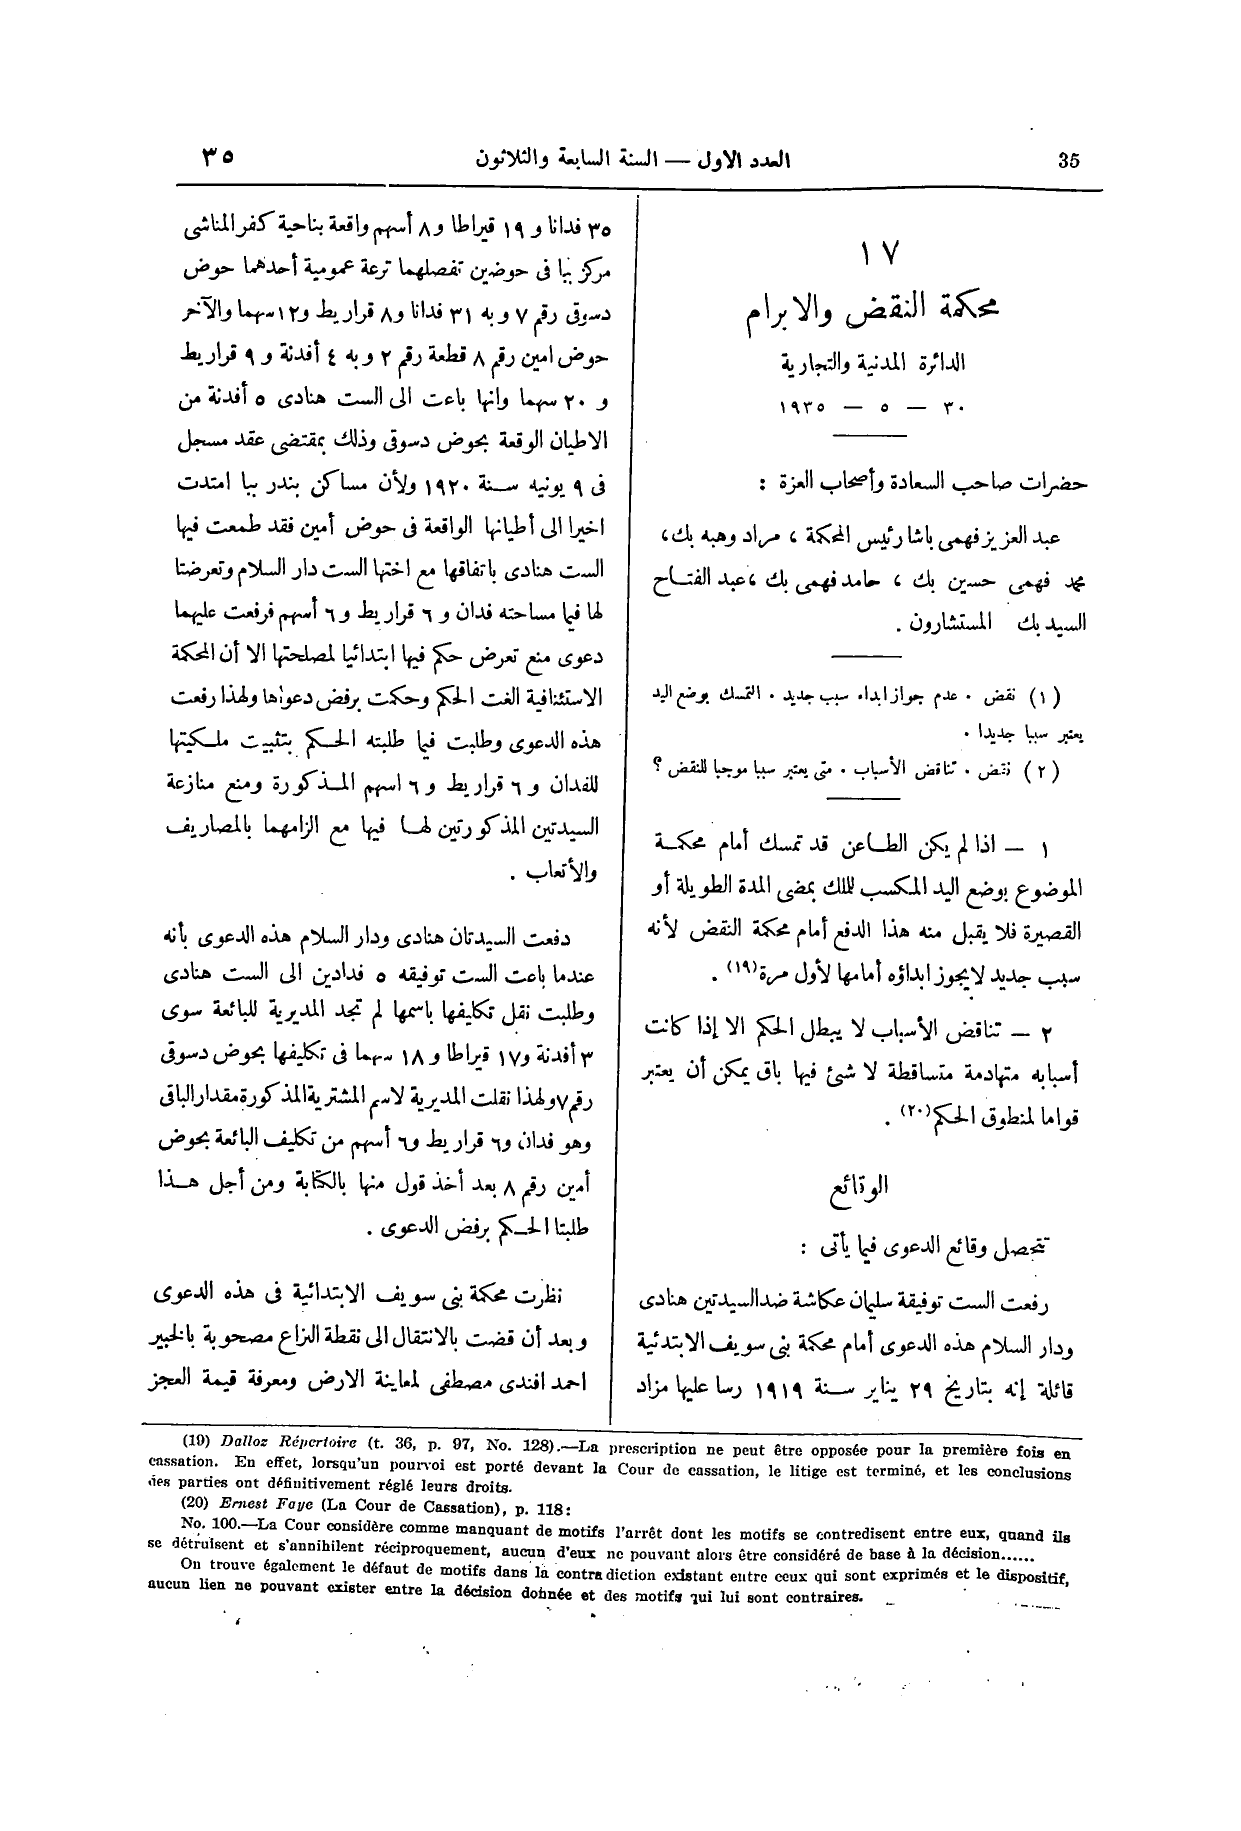 35 العدد الاول — السنة السابعة والثلاثون ٣٥
١٧
محكمة النقض والابرام
الدائرة المدنية والتجارية
٣٠ — ٥ — ١٩٣٥
حضرات صاحب السعادة وأصحاب العزة :
عبد العزيز فهمى باشا رئيس المحكمة ، مراد وهبه بك ،
محمد فهمى حسين بك ، حامد فهمى بك ، عبد الفتاح
السيد بك المستشارون .
(١) نقض . عدم جواز ابداء سبب جديد . التمسك بوضع اليد
يعتبر سببا جديدا .
(٢) نقض . تناقض الأسباب . متى يعتبر سببا موجبا للنقض ؟
١ — اذا لم يكن الطاعن قد تمسك أمام محكمة
الموضوع بوضع اليد المكسب للملك بمضى المدة الطويلة أو
القصيرة فلا يقبل منه هذا الدفع أمام محكمة النقض لأنه
سبب جديد لا يجوز ابداؤه أمامها لأول مرة(١٩) .
٢ — تناقض الأسباب لا يبطل الحكم الا إذا كانت
أسبابه متهادمة متساقطة لا شئ فيها باق يمكن أن يعتبر
قواما لمنطوق الحكم(٢٠) .
الوقائع
تتحصل وقائع الدعوى فيما يأتى :
رفعت الست توفيقة سليمان عكاشة ضد السيدتين هنادى
ودار السلام هذه الدعوى أمام محكمة بنى سويف الابتدئية
قائلة إنه بتاريخ ٢٩ يناير سنة ١٩١٩ رسا عليها مزاد
٣٥ فدانا و ١٩ قيراطا و ٨ أسهم واقعة بناحية كفر المناشى
مركز ببا فى حوضين تفصلهما ترعة عمومية أحدهما حوض
دسوقى رقم ٧ و به ٣١ فدانا و ٨ قراريط و ١٢ سهما والآخر
حوض امين رقم ٨ قطعة رقم ٢ و به ٤ أفدنة و ٩ قراريط
و ٢٠ سهما وانها باعت الى الست هنادى ٥ أفدنة من
الاطيان الوقعة بحوض دسوقى وذلك بمقتضى عقد مسجل
فى ٩ يونيه سنة ١٩٢٠ ولأن مساكن بندر ببا امتدت
اخيرا الى أطيانها الواقعة فى حوض أمين فقد طمعت فيها
الست هنادى باتفاقها مع اختها الست دار السلام وتعرضتا
لها فيما مساحته فدان و ٦ قراريط و ٦ أسهم فرفعت عليهما
دعوى منع تعرض حكم فيها ابتدائيا لمصلحتها الا أن المحكمة
الاستئنافية الغت الحكم وحكمت برفض دعواها ولهذا رفعت
هذه الدعوى وطلبت فيما طلبته الحكم بتثبيت ملكيتها
للفدان و ٦ قراريط و ٦ اسهم المذكورة ومنع منازعة
السيدتين المذكورتين لها فيها مع الزامهما بالمصاريف
والأتعاب .
دفعت السيدتان هنادى ودار السلام هذه الدعوى بأنه
عندما باعت الست توفيقه ٥ فدادين الى الست هنادى
وطلبت نقل تكليفها باسمها لم تجد المديرية للبائعة سوى
٣ أفدنة و١٧ قيراطا و ١٨ سهما فى تكليفها بحوض دسوقى
رقم ٧ ولهذا نقلت المديرية لاسم المشترية المذكورة مقدار الباقى
وهو فدان و٦ قراريط و٦ أسهم من تكليف البائعة بحوض
أمين رقم ٨ بعد أخذ قول منها بالكتابة ومن أجل هذا
طلبتا الحكم برفض الدعوى .
نظرت محكمة بنى سويف الابتدائية فى هذه الدعوى
وبعد أن قضت بالانتقال الى نقطة النزاع مصحوبة بالخبير
احمد افندى مصطفى لمعاينة الارض ومعرفة قيمة العجز
(19) Dalloz Répertoire (t. 36, p. 97, No. 128).—La prescription ne peut être opposée pour la première fois en
cassation. En effet, lorsqu'un pourvoi est porté devant la Cour de cassation, le litige est terminé, et les conclusions
des parties ont définitivement réglé leurs droits.
(20) Ernest Faye (La Cour de Cassation), p. 118:
No. 100.—La Cour considère comme manquant de motifs l'arrêt dont les motifs se contredisent entre eux, quand ils
se détruisent et s'annihilent réciproquement, aucun d'eux ne pouvant alors être considéré de base à la décision......
On trouve également le défaut de motifs dans la contradiction existant entre ceux qui sont exprimés et le dispositif,
aucun lien ne pouvant exister entre la décision donnée et des motifs qui lui sont contraires.